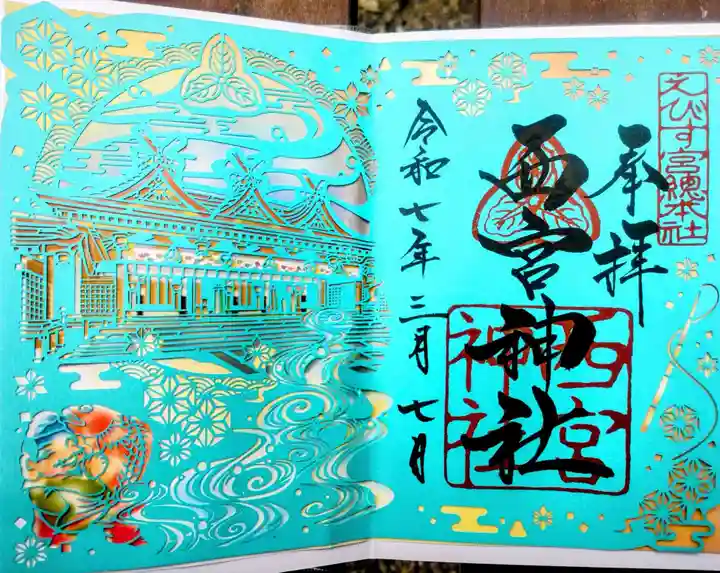 えびす宮總本社
奉拝
西宮神社
西宮
神社
令和七年三月七日